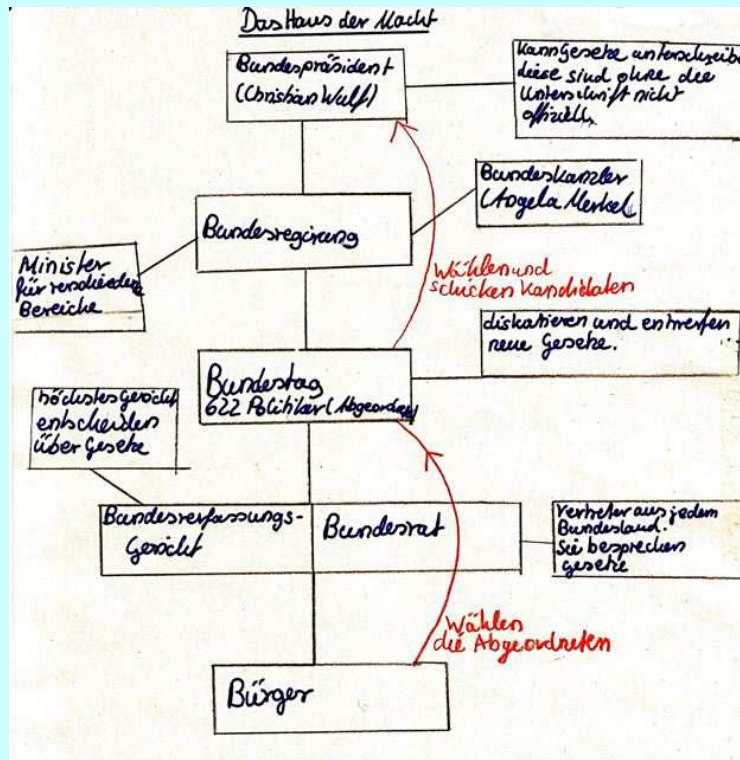 Das Haus der Macht
Bundespräsident
(Christian Wulf)
Kann Gesetze unterschreibe
diese sind ohne die
Unterschrift nicht
offiziell.
Bundeskanzler
(Angela Merkel
Bundesregirung
Minister
für verschiedene
Bereiche
Wählen und
schicken Kandidaten
diskutieren und entwerfen
neue Gesetze.
Bundestag
622 Politiker (Abgeordnete)
höchstes Geröcht
entscheiden
über Gesetze
Bundesverfassungs-
Geröcht
Bundesrat
Vertreter aus jedem
Bundesland.
Sie besprechen
gesetze
Wählen
die Abgeordneten
Bürger